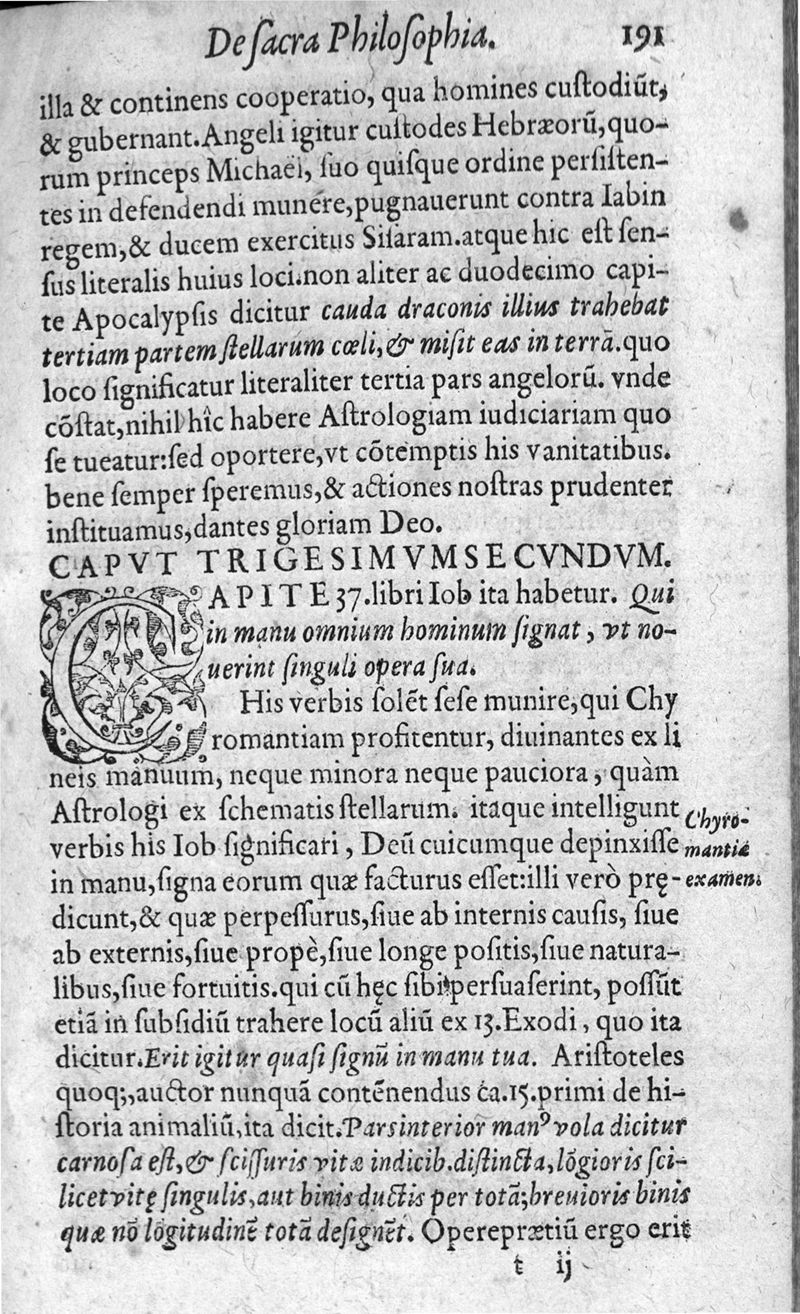 De ſacra Philoſophia. 191
illa & continens cooperatio, qua homines cuſtodiũt,
& gubernant. Angeli igitur cuſtodes Hebræorũ, quo-
rum princeps Michael, ſuo quiſque ordine perſiſten-
tes in defendendi munere, pugnauerunt contra Iabin
regem, & ducem exercitus Siſaram. atque hic eſt ſen-
ſus literalis huius loci. non aliter ac duodecimo capi-
te Apocalypſis dicitur cauda draconis illius trahebat
tertiam partem ſtellarum cœli, & miſit eas in terrā. quo
loco ſignificatur literaliter tertia pars angelorũ. vnde
cōſtat, nihil hîc habere Aſtrologiam iudiciariam quo
ſe tueatur: ſed oportere, vt cōtemptis his vanitatibus.
bene ſemper ſperemus, & actiones noſtras prudenter
inſtituamus, dantes gloriam Deo.
CAPVT TRIGESIMVMSECVNDVM.
CAPITE 37. libri Iob ita habetur. Qui
in manu omnium hominum ſignat, vt no-
uerint ſinguli opera ſua.
His verbis ſolēt ſeſe munire, qui Chy
romantiam profitentur, diuinantes ex li
neis manuum, neque minora neque pauciora, quàm
Aſtrologi ex ſchematis ſtellarum. itaque intelligunt
verbis his Iob ſignificari, Deũ cuicumque depinxiſſe
in manu, ſigna eorum quæ facturus eſſet: illi verò prę-
Chyro-
mantiæ
examen.
dicunt, & quæ perpeſſurus, ſiue ab internis cauſis, ſiue
ab externis, ſiue propè, ſiue longe poſitis, ſiue natura-
libus, ſiue fortuitis. qui cũ hęc ſibi perſuaſerint, poſſũt
etiā in ſubſidiũ trahere locũ aliũ ex 13. Exodi, quo ita
dicitur. Erit igitur quaſi ſignũ in manu tua. Ariſtoteles
quoq;, auctor nunquā contēnendus ca. 15. primi de hi-
ſtoria animaliũ, ita dicit. Pars interior manꝰ vola dicitur
carnoſa eſt, & ſciſſuris vitæ indicib. diſtincta, lōgioris ſci-
licet vitę ſingulis, aut binis ductis per totā; breuioris binis
quæ nō lōgitudinē totā deſignēt. Opereprætiũ ergo erit
t ij